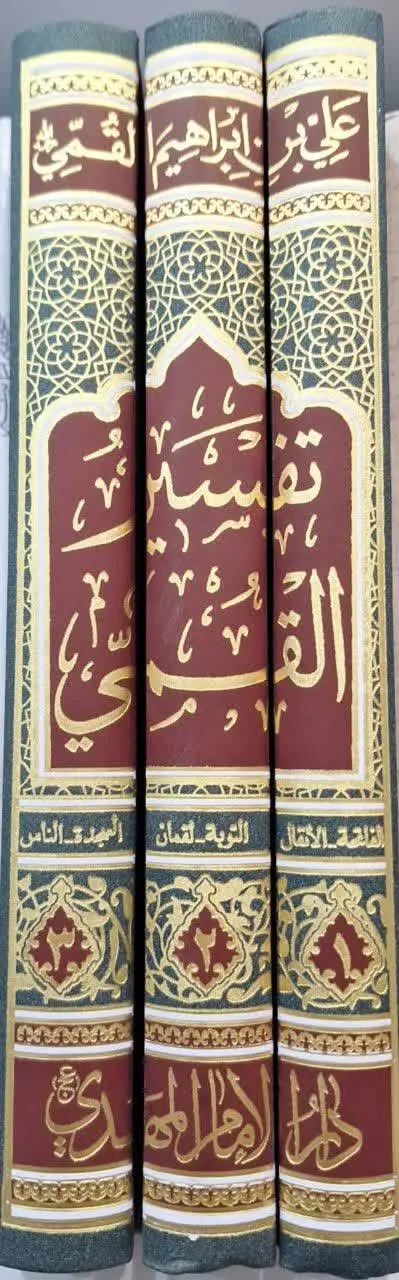 علي بن إبراهيم القمي
تفسير
القمي
الفاتحة - الأنفال
التوبة - لقمان
السجدة - الناس
١ ٢ ٣
دار الإمام المهدي